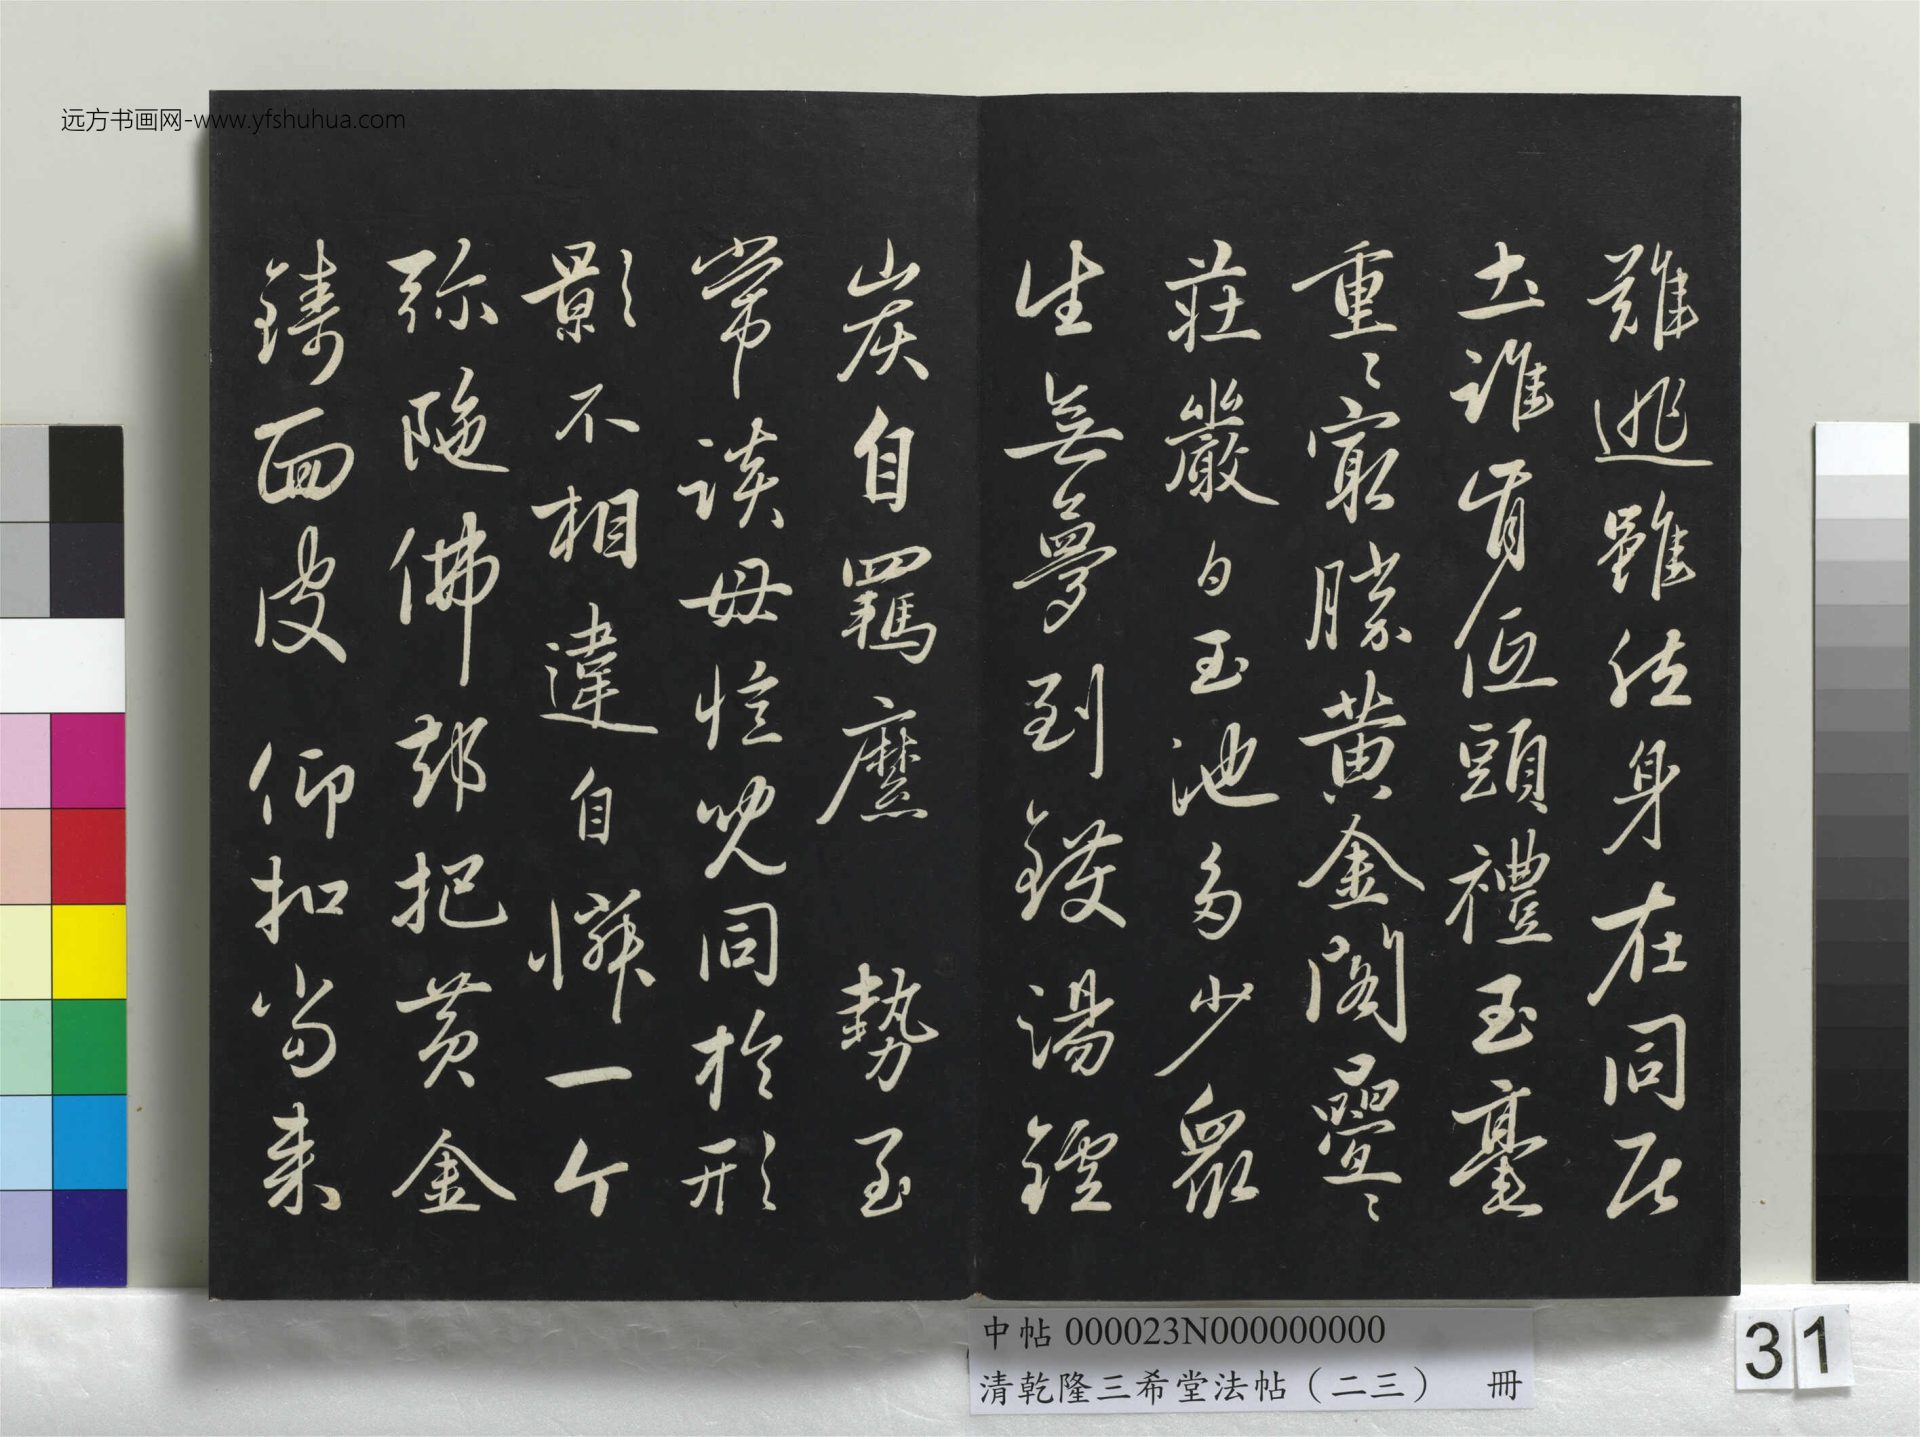 远方书画网-www.yfshuhua.com
難逃雖然身在同居
土誰肯低頭禮玉毫
重〻冣勝黄金閣疊〻
莊嚴白玉池多少衆
生無夢到鑊湯鑪
炭自羈縻 勢至
常談母憶兒同於形
影不相違自憐一个
弥陁佛却把黄金
鑄面皮 仰扣當来
中帖 000023N000000000
清乾隆三希堂法帖（二三） 冊
31